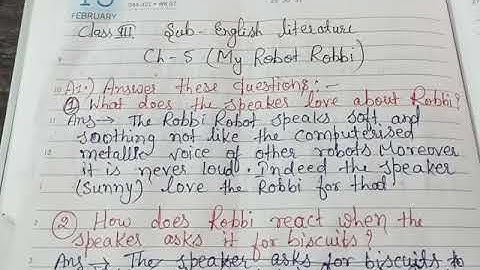 FEBRUARY
Class III Sub- English literature
Ch-5 (My Robot Robbi)
10 A1.) Answer these questions:-
① What does the speaker love about Robbi?
11 Ans→ The Robbi Robot speaks soft and
soothing not like the computerised
12 metallic voice of other robots. Moreover
it is never loud. Indeed the speaker
1 (Sunny) love the Robbi for that
2 ② How does Robbi react when the
speaker asks it for biscuits?
3 Ans → The speaker asks for biscuits to